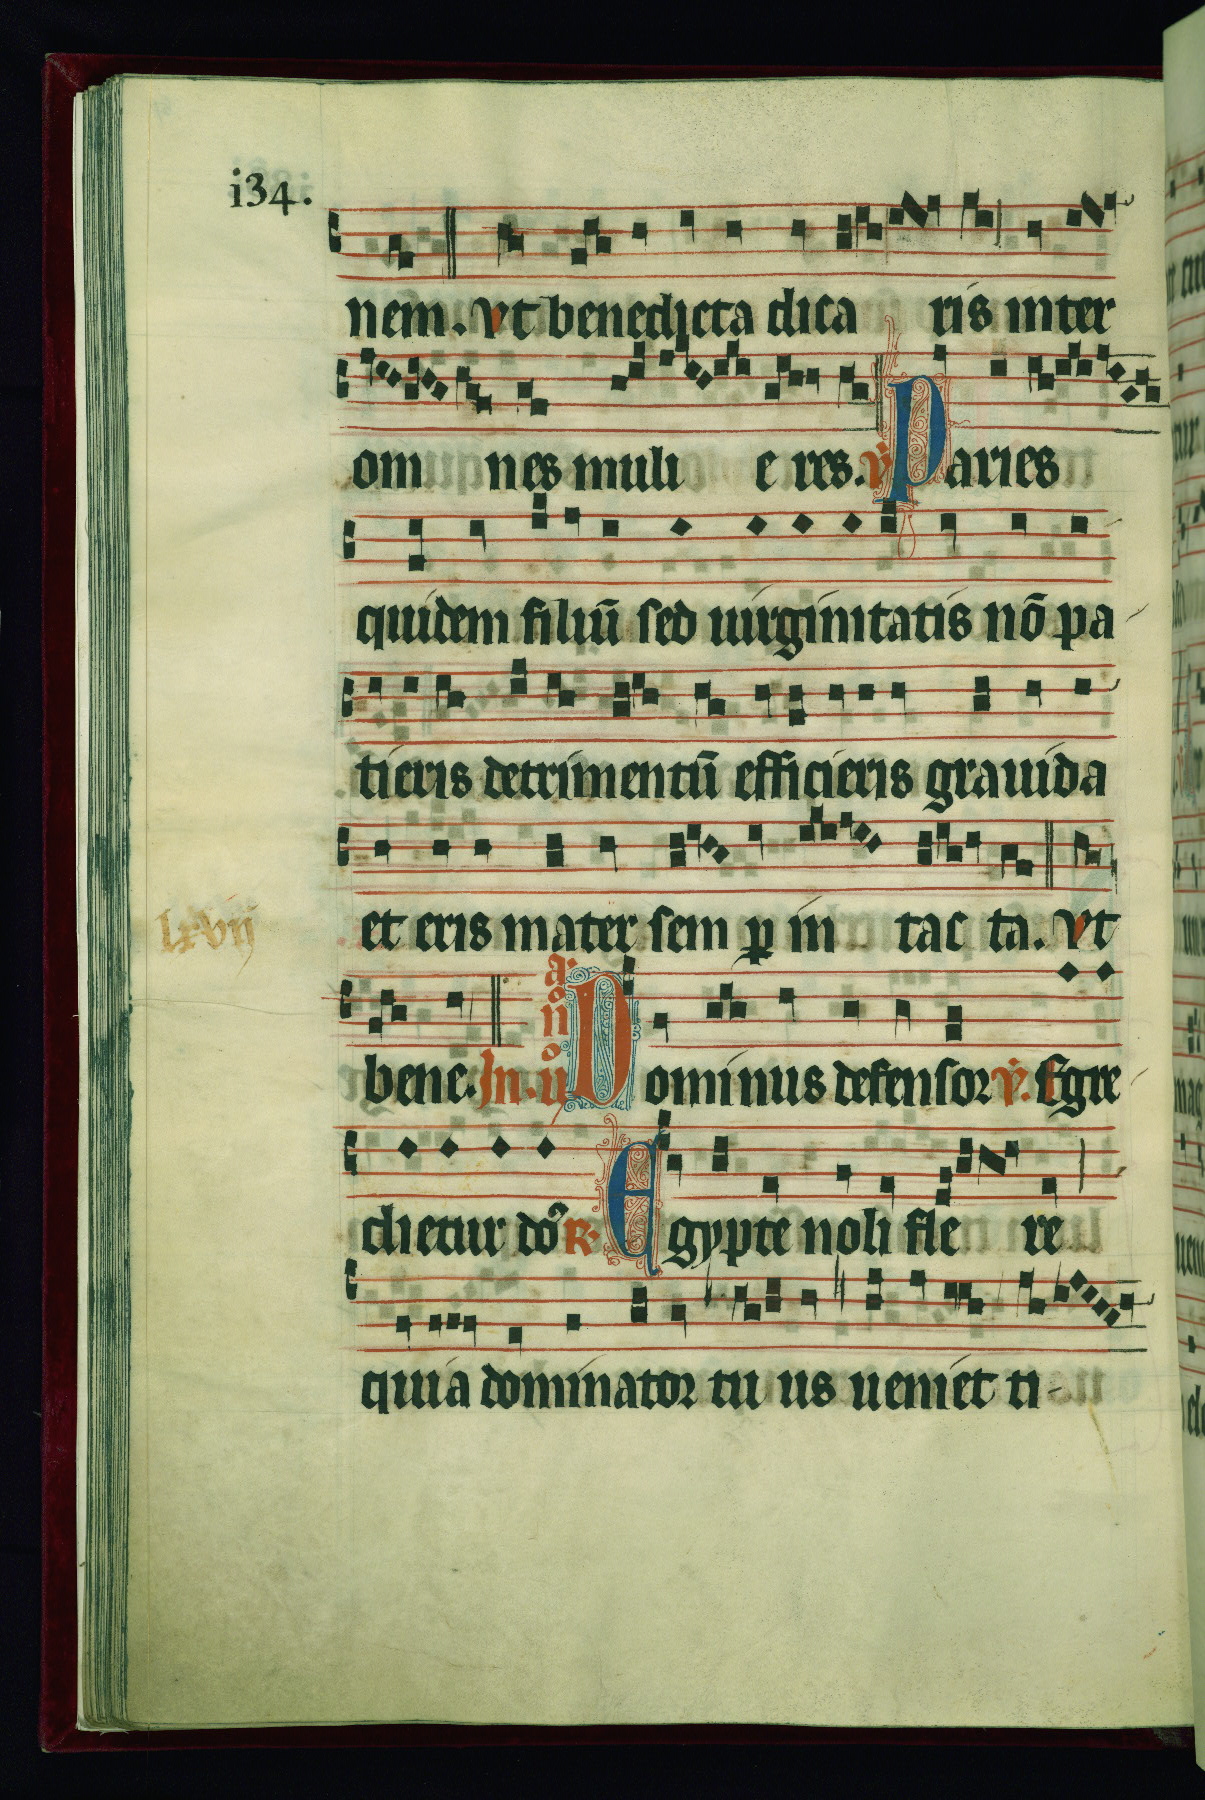 i34.
nem. vt benedicta dica ris inter
om nes muli e res. ℣ Paries
quidem filiū sed uirginitatis nō pa
tieris detrimentū efficieris grauida
et eris mater sem ꝑ in tac ta. vt
lxvij
bene. In .iiº añ Dominus defensor ℣. Egre
dietur dõ R. Egypte noli fle re
quia dominator tu us ueniet ti-